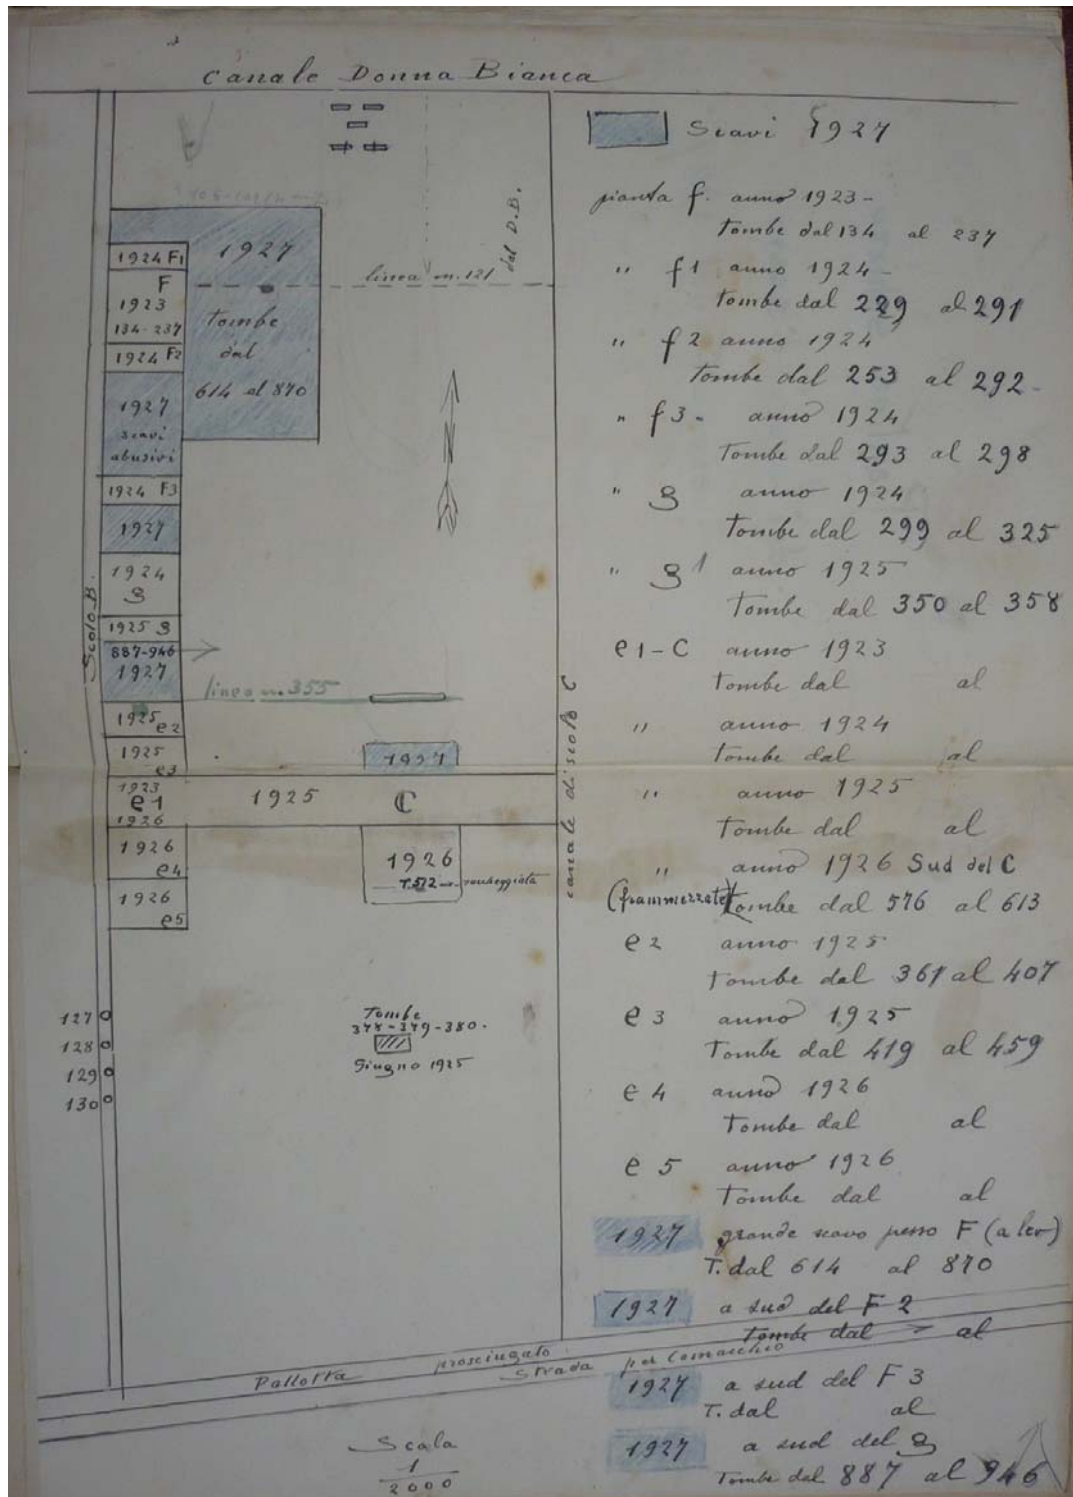 Canale Donna Bianca
1927
1924 F1
F
1923
134-237
1924 F2
tombe
dal
614 al 870
linea m. 121
dal D.B.
1927
scavi
abusivi
1924 F3
1927
1924
g
1925 g
887-946
1927
Scolo B.
linea m. 355
1925
e2
1925
e3
1927
1923
e1
1926
1925
C
canale di scolo C
1926
e4
1926
e5
1926
T. 512
127
128
129
130
Tombe
378-379-380.
Giugno 1925
Pallotta
prosciugato
Strada per Comacchio
Scala
1
2000
Scavi 1927
pianta f. anno 1923-
Tombe dal 134 al 237
" f1 anno 1924-
Tombe dal 229 al 291
" f2 anno 1924
Tombe dal 253 al 292-
" f3- anno 1924
Tombe dal 293 al 298
" g anno 1924
Tombe dal 299 al 325
" g1 anno 1925
Tombe dal 350 al 358
e1-C anno 1923
Tombe dal al
" anno 1924
Tombe dal al
" anno 1925
Tombe dal al
" anno 1926 Sud del C
(frammezzate) Tombe dal 576 al 613
e2 anno 1925
Tombe dal 361 al 407
e3 anno 1925
Tombe dal 419 al 459
e4 anno 1926
Tombe dal al
e5 anno 1926
Tombe dal al
1927 grande scavo presso F (a lev)
T. dal 614 al 870
1927 a sud del F2
Tombe dal al
1927 a sud del F3
T. dal al
1927 a sud del g
Tombe dal 887 al 946